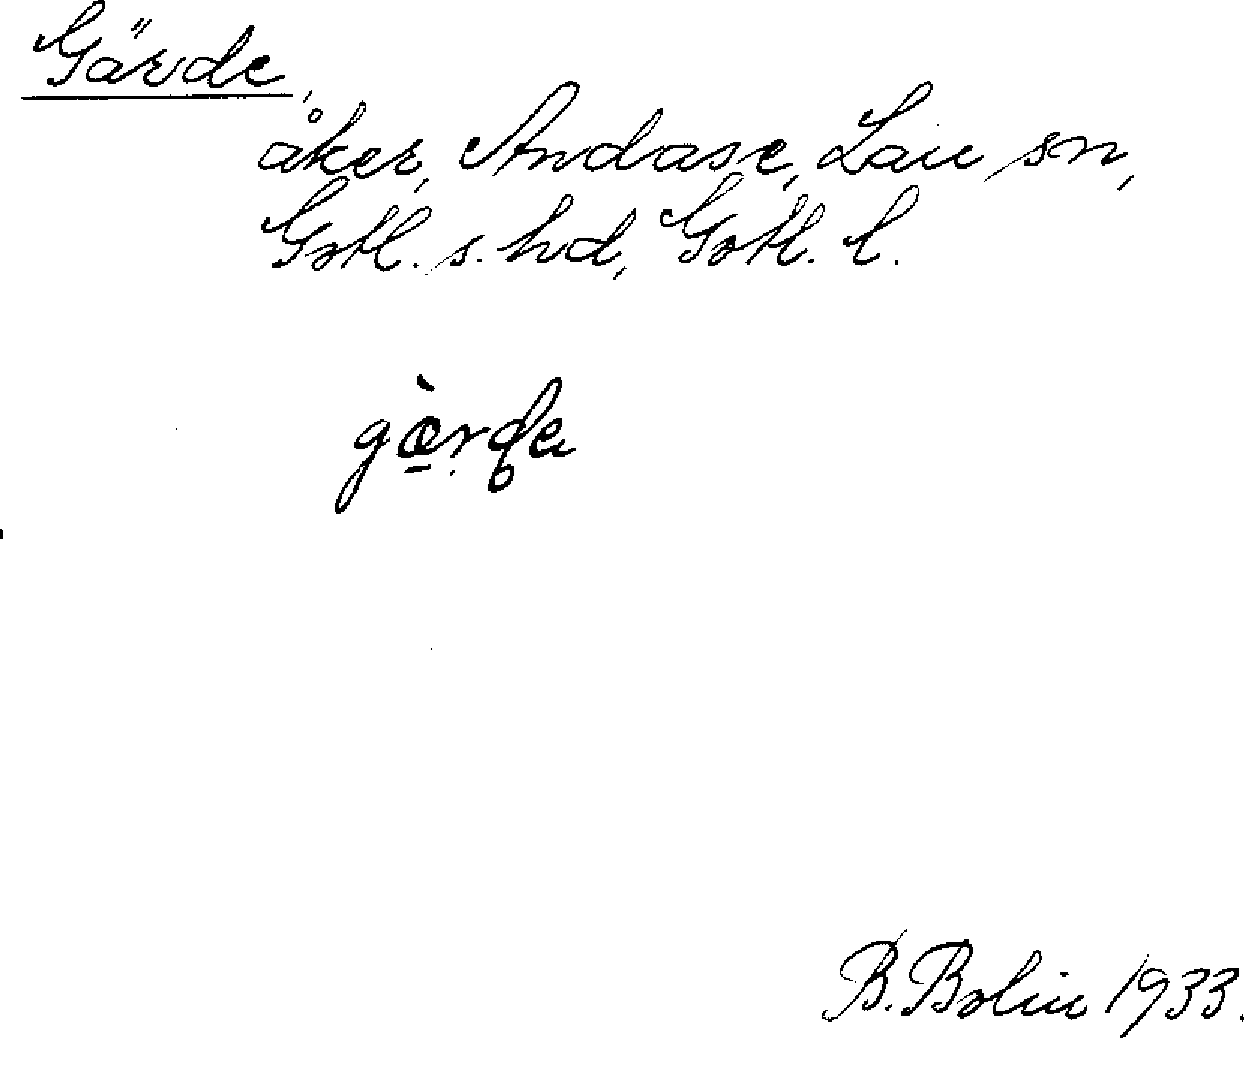 Gärde,
åker, Andase, Lau sn,
Gotl. s. hd, Gotl. l.
gæ̀rde
B. Bolin 1933.